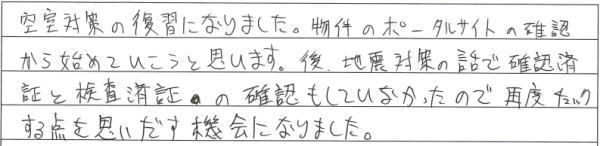 空室対策の復習になりました。物件のポータルサイトの確認
から始めていこうと思います。後、地震対策の話で確認済
証と検査済証の確認もしていなかったので再度チェック
する点を思いだす機会になりました。